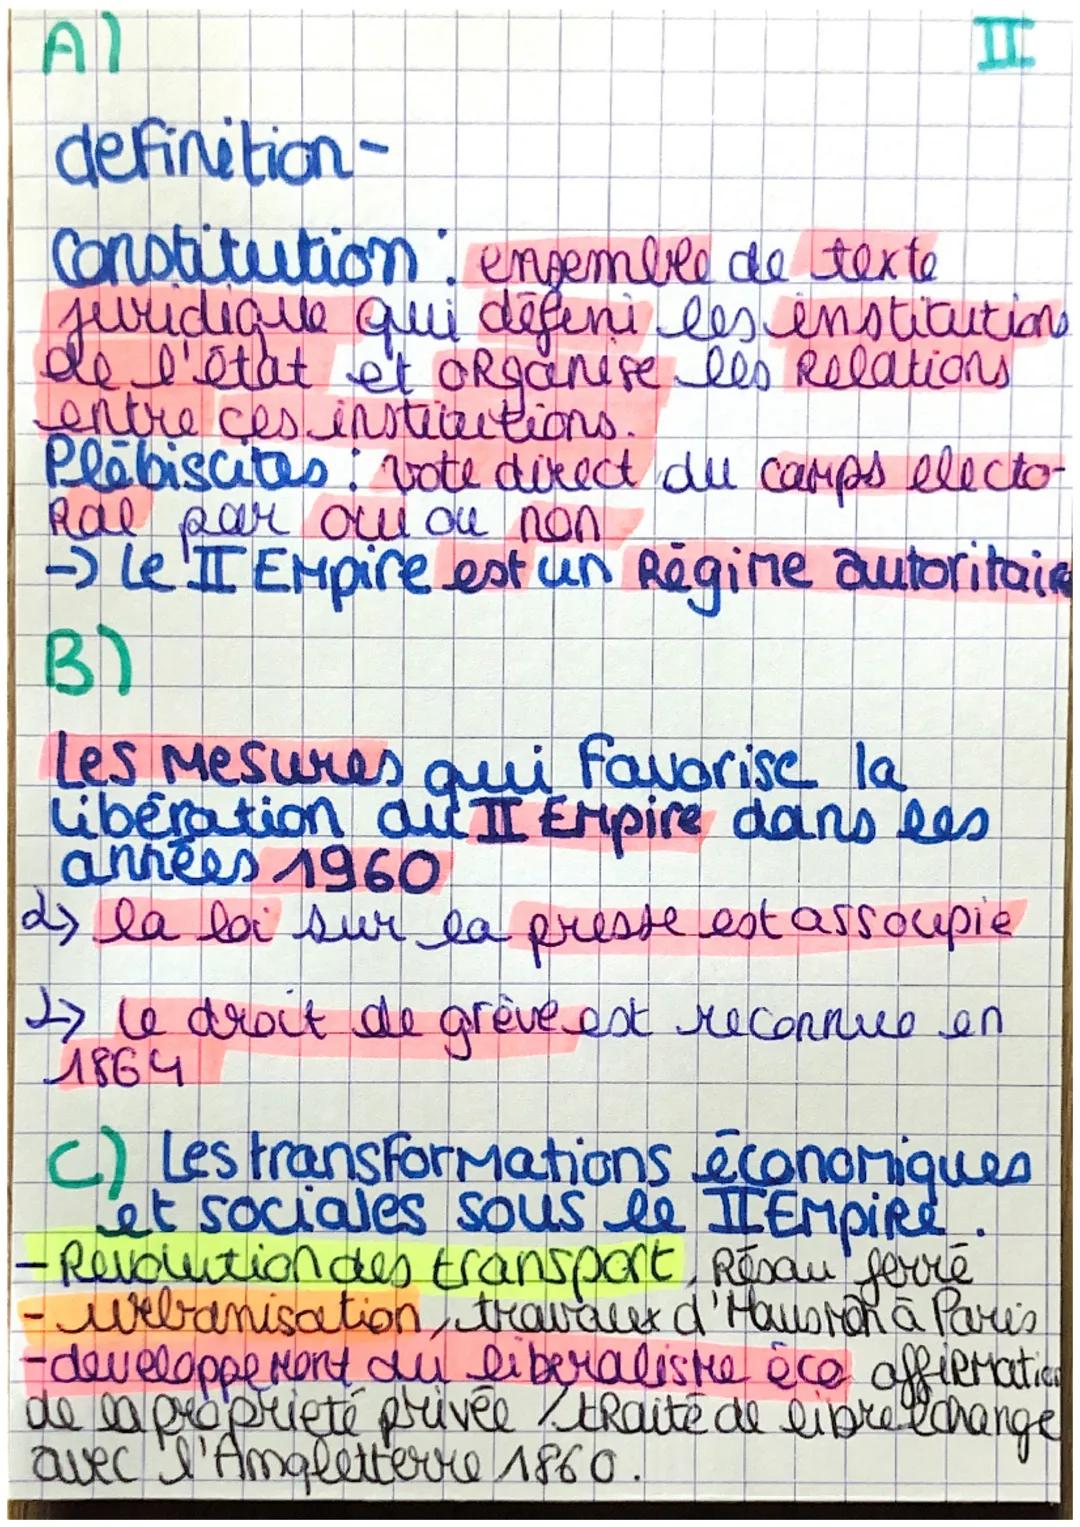 A)
II
definition-
Constitution : ensemble de texte
juridique qui défini les institutions
de l'état et organise les Relations
entre ces institutions.
Plébiscites : vote direct du camps electo-
Ral par oui ou non
-> Le II Empire est un Régime autoritaire
B)
Les Mesures qui favorise la
libération du II Empire dans les
années 1960
↳ la loi sur la presse est assoupie
↳ le droit de grève est reconnue en
1864
C) Les transformations économiques
et sociales sous le II Empire.
- Revolution des transport, Résau ferré
- urbanisation, travaux d'Hausman à Paris
- developpement du liberalisme éco affirmation
de la propriété privée / traité de libre échange
avec l'Amgletterre 1860.